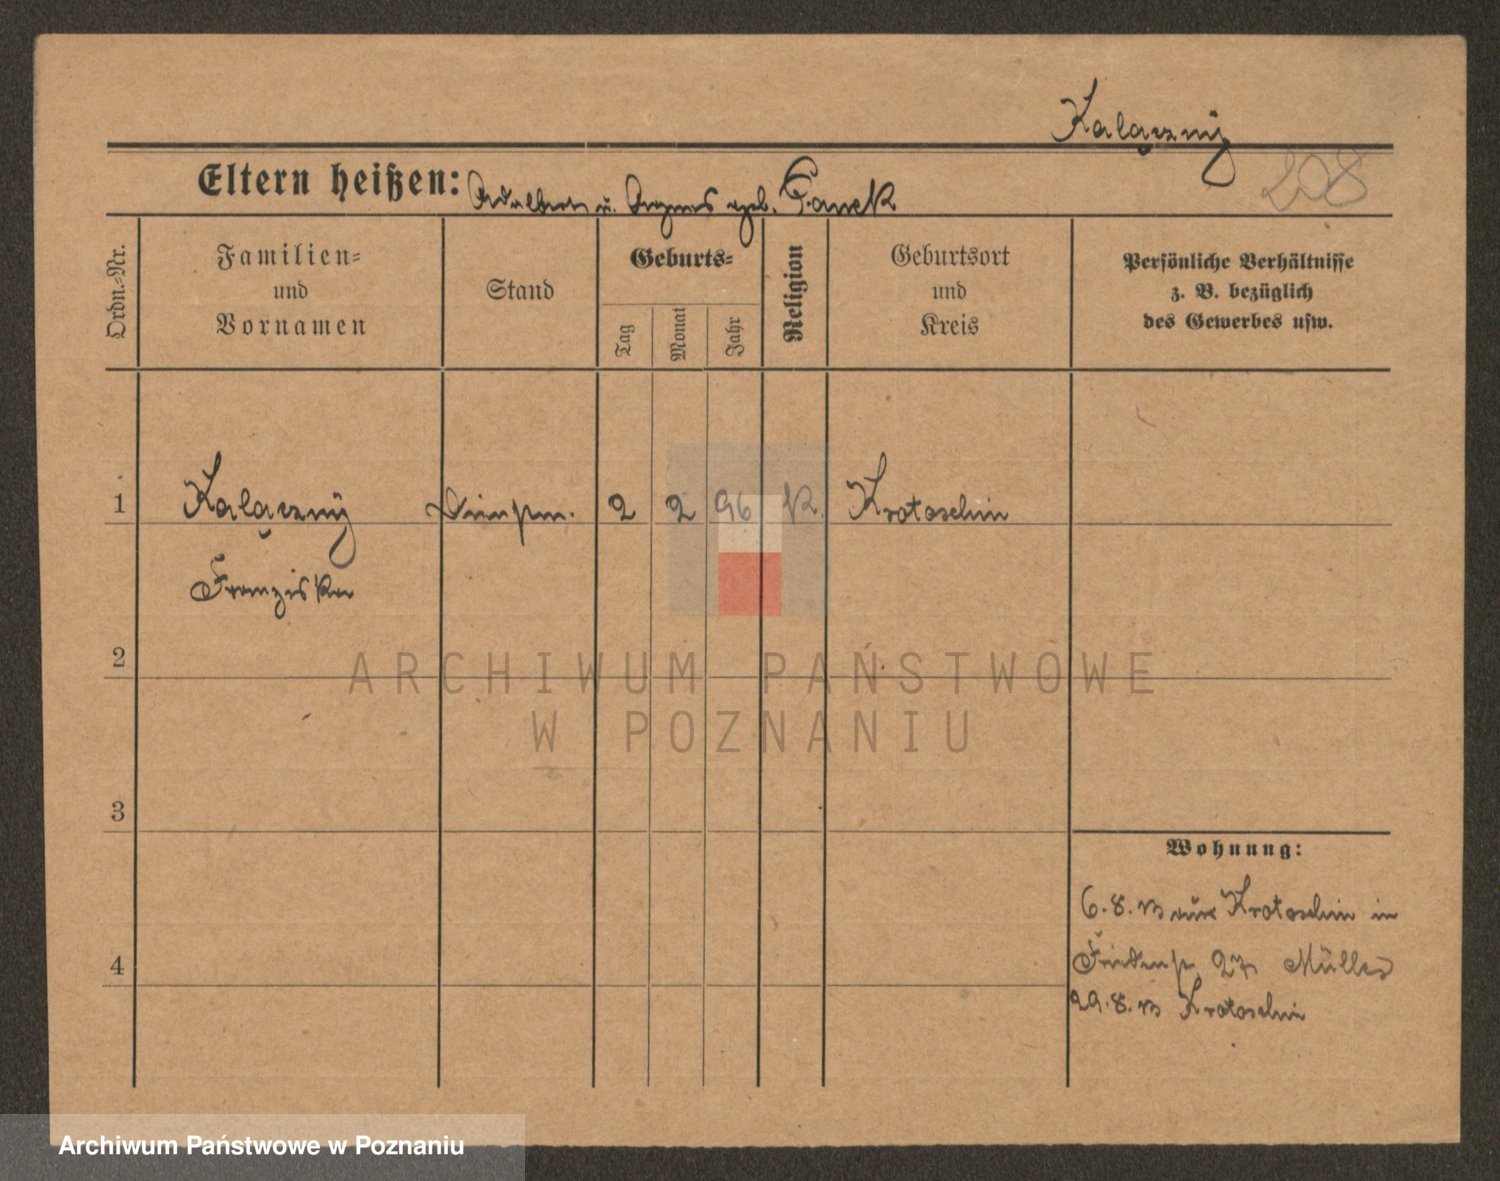 Kalączny
208
Eltern heißen: Adalbert u. Agnes geb. Panek
Ordn.-Nr.
Familien-
und
Vornamen
Stand
Geburts-
Tag
Monat
Jahr
Religion
Geburtsort
und
Kreis
Persönliche Verhältnisse
z. B. bezüglich
des Gewerbes usw.
1 Kalączny 2 2 96 K. Krotoschin
Franziska
2
ARCHIWUM PAŃSTWOWE
W POZNANIU
3
Wohnung:
6.8.13 aus Krotoschin in
4
Friedenst. 27 Müller
29.8.13 Krotoschin
Archiwum Państwowe w Poznaniu